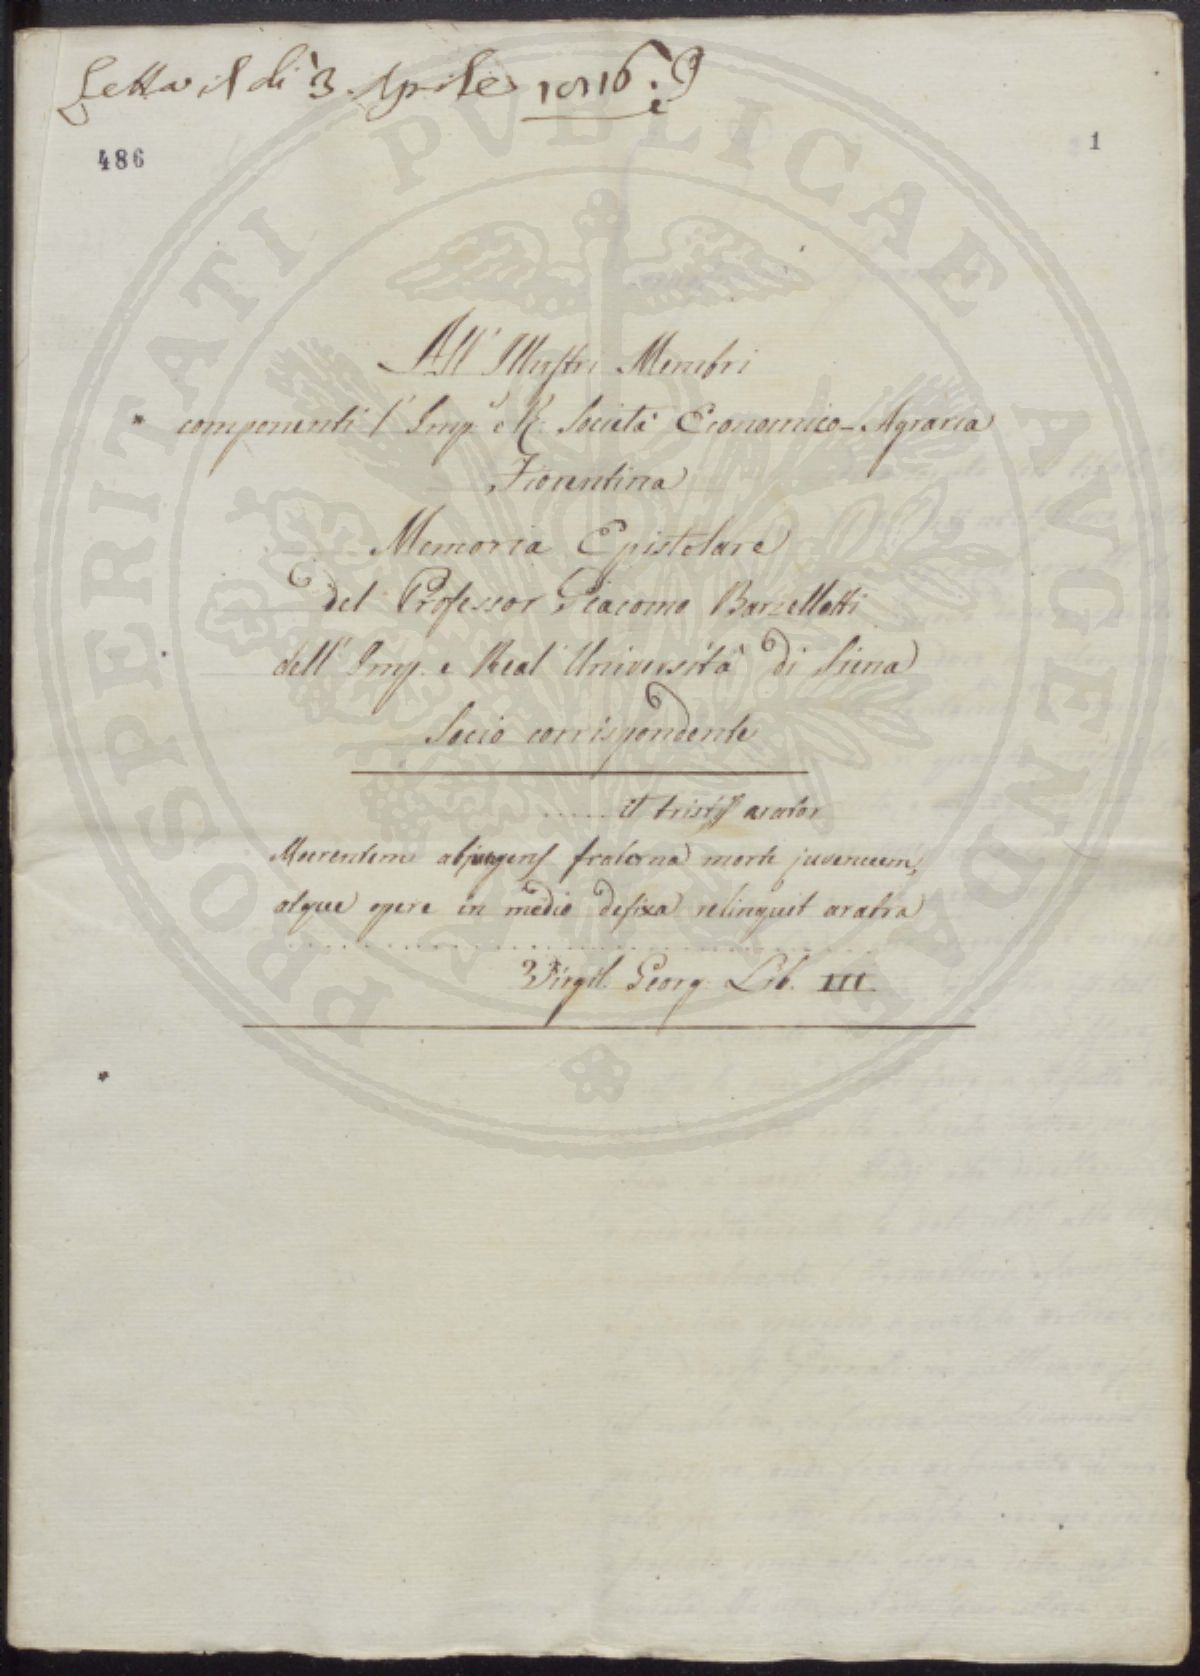 Letta il di 3 Aprile 1816.
486
1
All' Illustri Membri
componenti l' Imp. e R. Società Economico-Agraria
Fiorentina
Memoria Epistolare
del Professor Giacomo Barzellotti
dell' Imp. e Real Università di Siena
Socio corrispondente
...... it tristis arator
Moerentem abjungens fraterna morte juvencum,
atque opere in medio defixa relinquit aratra
Virgil. Georg. Lib. III
PROSPERITATI PVBLICAE AVGENDAE